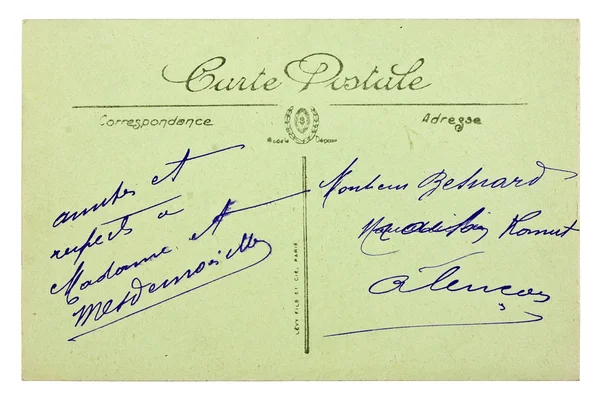 Carte Postale
Correspondance
Adresse
Modèle Déposé
amitiés et
respects à
Madame et
Mesdemoiselles
LÉVY FILS ET CIE, PARIS
Monsieur Besnard
Alençon